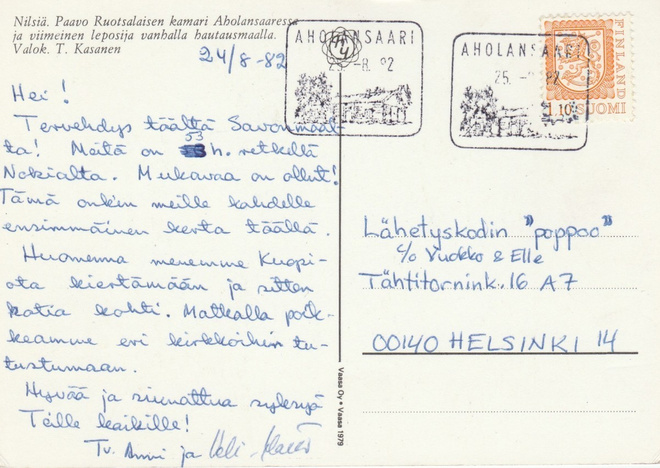 Nilsiä. Paavo Ruotsalaisen kamari Aholansaaressa
ja viimeinen leposija vanhalla hautausmaalla.
Valok. T. Kasanen
24/8-82
Hei!
Tervehdys täältä Savonmaal-
ta! Meitä on 53 h. retkellä
Nokialta. Mukavaa on ollut!
Tämä onkin meille kahdelle
ensimmäinen kerta täällä.
Huomenna menemme Kuopi-
ota kiertämään ja sitten
kotia kohti. Matkalla poik-
keamme eri kirkkoihin tu-
tustumaan.
Hyvää ja siunattua syksyä
Teille kaikille!
Tv. Anni ja
AHOLANSAARI
-8. 82
AHOLANSAARI
25. 82
FINLAND
1,10 SUOMI
Lähetyskodin "poppoo"
c/o Vuokko & Elle
Tähtitornink. 16 A 7
00140 HELSINKI 14
Vaasa Oy • Vaasa 1979